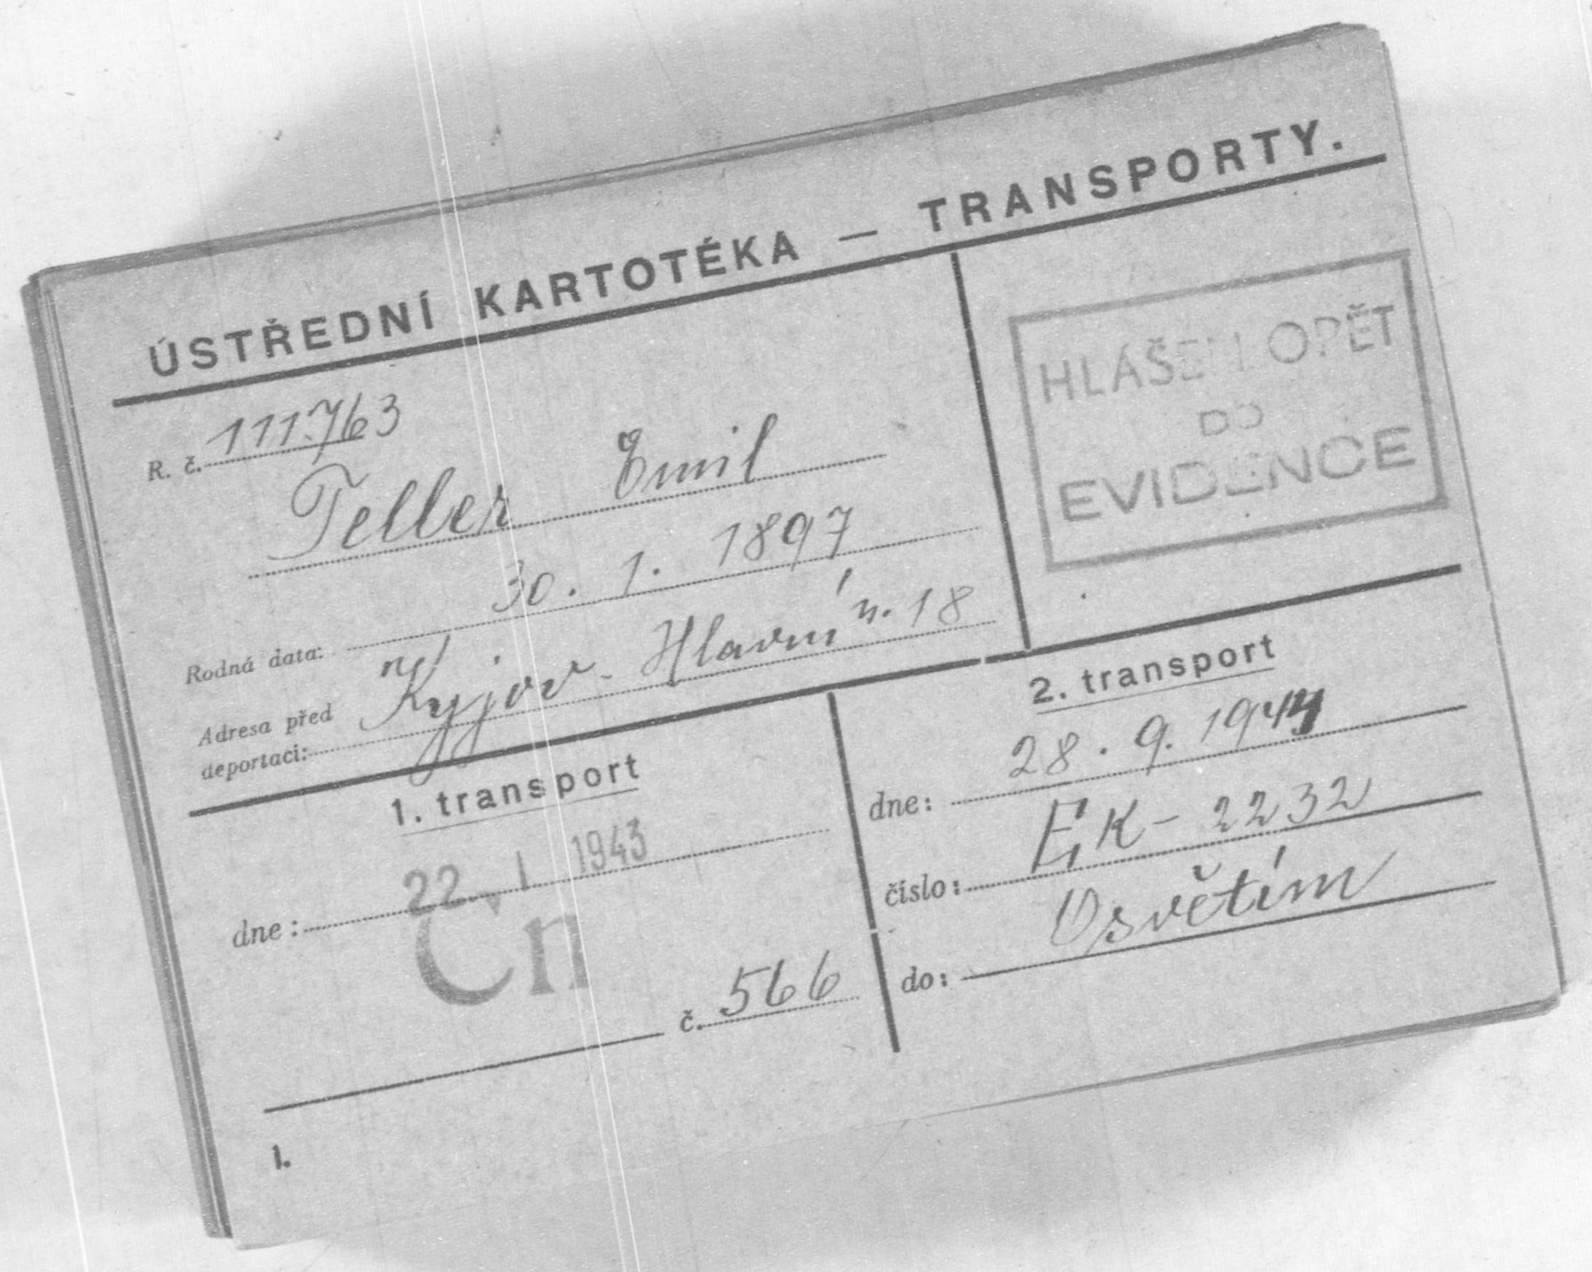 ÚSTŘEDNÍ KARTOTÉKA — TRANSPORTY.
R. č. 111.763
Teller Emil
Rodná data: 30. 1. 1897
Adresa před
deportací: Kyjov - Hlavní n. 18
HLÁŠEN OPĚT
DO
EVIDENCE
1. transport
dne: 22. 1 1943
Čn
č. 566
2. transport
dne: 28. 9. 1944
číslo: Ek - 2232
do: Osvětím
1.